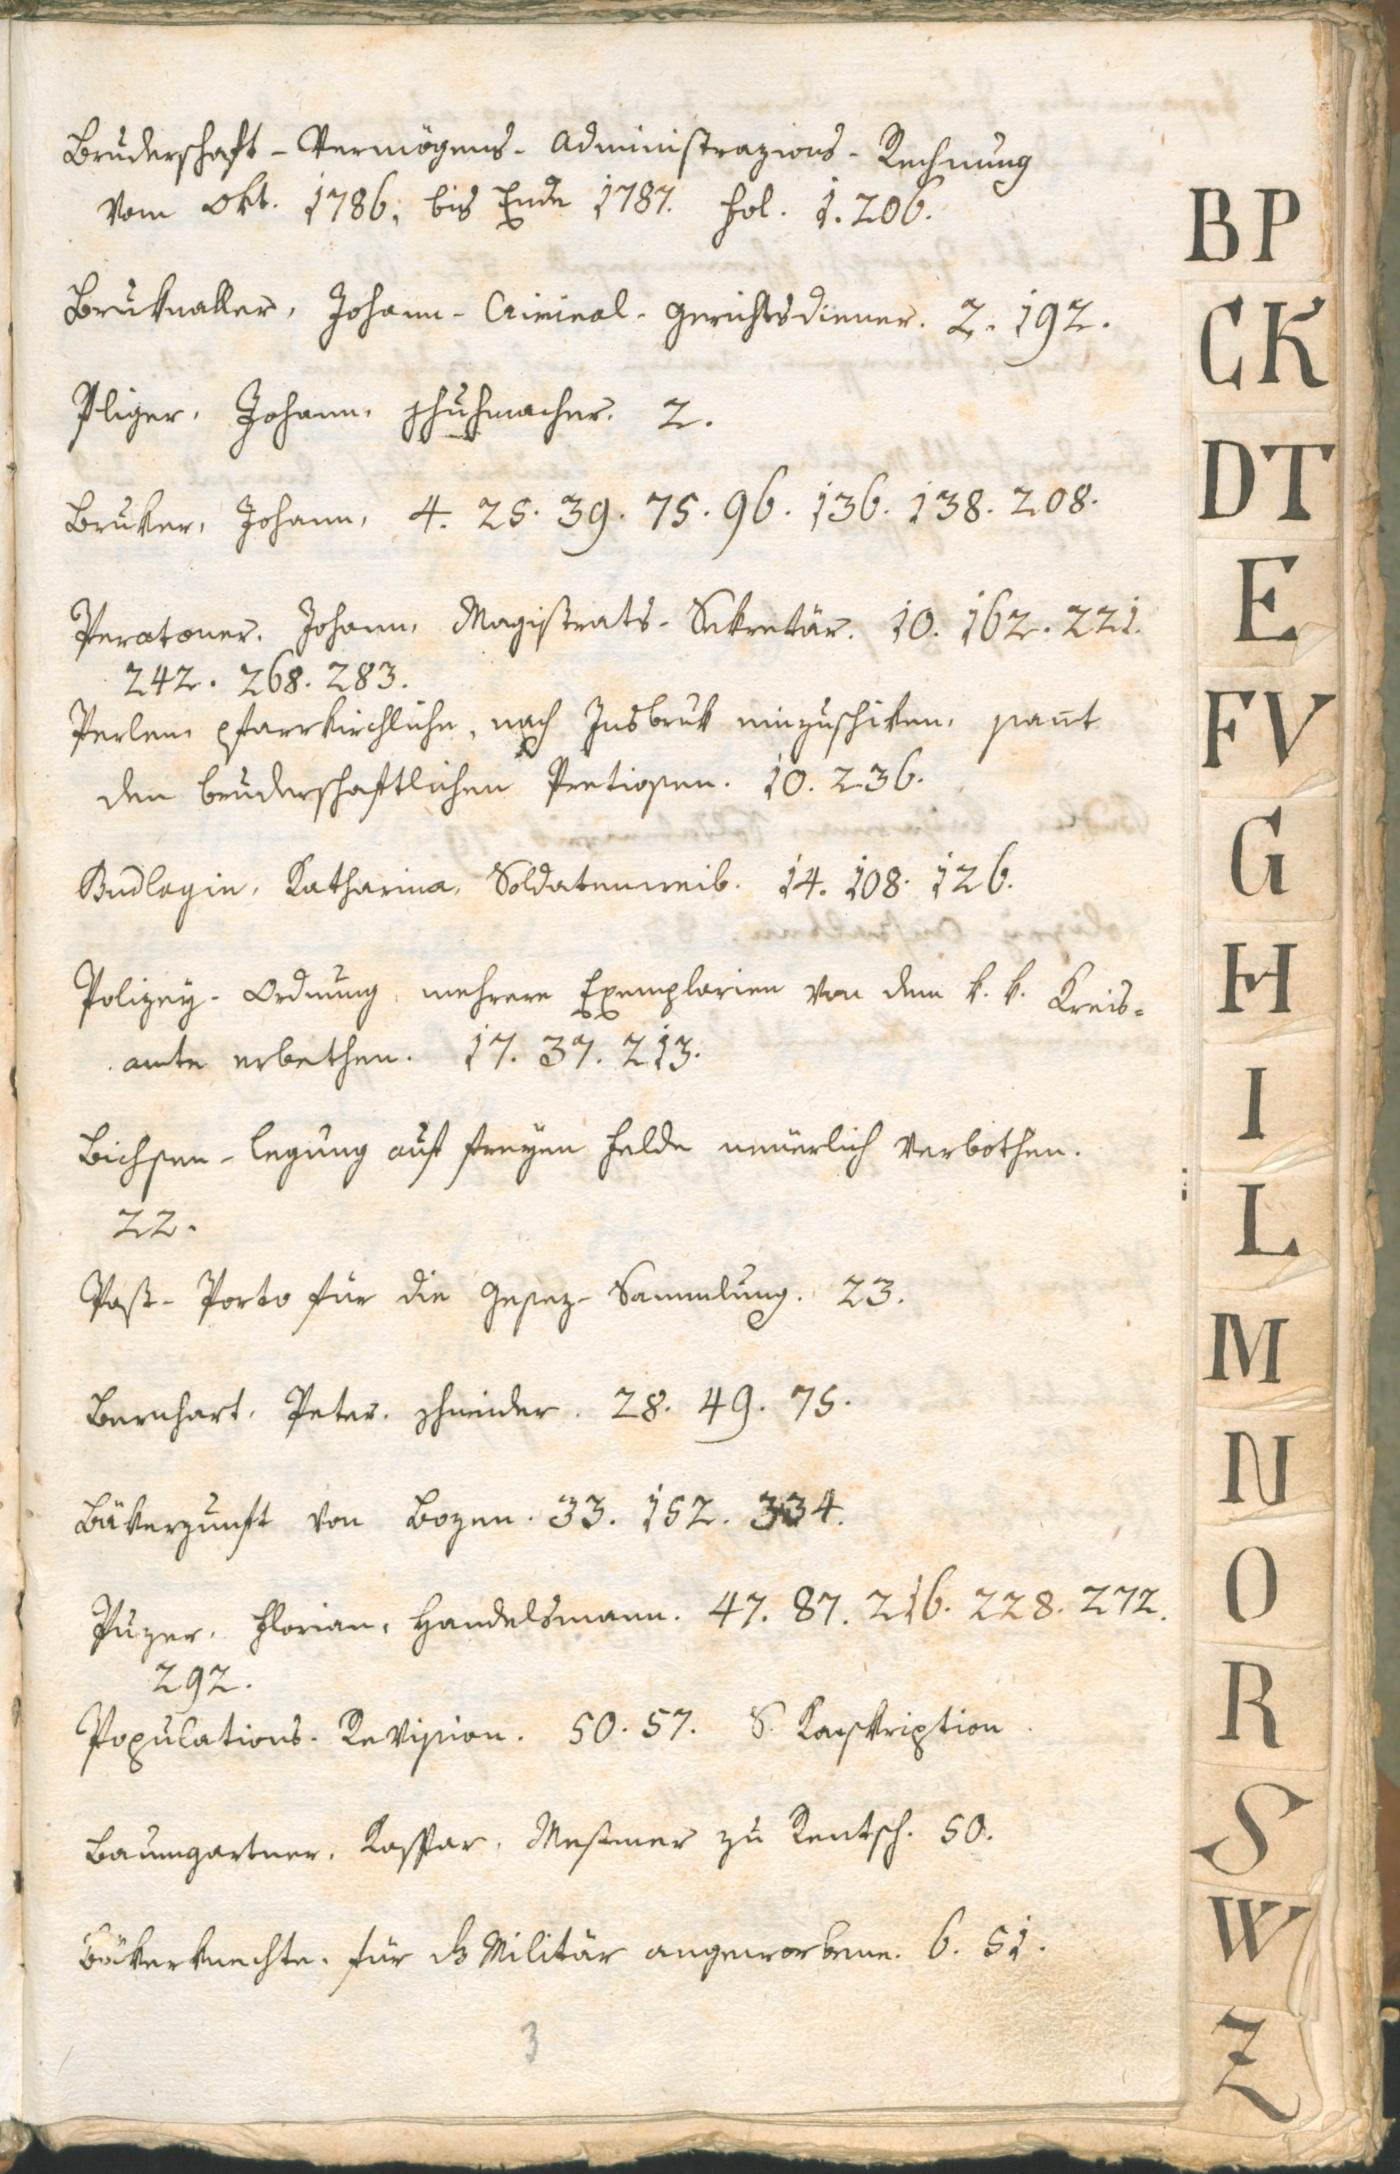 Bruderschaft - Vermögens - Administrazions - Rechnung
vom Okt. 1786. bis Ende 1787. fol. 1. 206.
Johann - Criminal - Gerichtsdiener. 2. 192.
Pliger, Johann, Schuhmacher. 2.
Bruker, Johann, 4. 25. 39. 75. 96. 136. 138. 208.
Peratoner, Johann, Magistrats - Sekretär. 10. 162. 221.
242. 268. 283.
Perlen pfarrkirchliche, nach Insbruk einzuschiken, samt
den bruderschaftlichen Pretiosen. 10. 236.
Budlogin, Katharina, Soldatenweib. 14. 108. 126.
Polizey - Ordnung, mehrere Exemplarien von dem k. k. Kreis-
amte erbethen. 17. 37. 213.
Bichsen - legung auf freyem Felde neuerlich verbothen.
22.
Post - Porto für die Gesez - Sammlung. 23.
Bernhart, Peter, Schneider. 28. 49. 75.
Bäkerzunft von Bozen. 33. 152. 334.
Puzer, Florian, Handelsmann. 47. 87. 216. 228. 272.
292.
Populations - Revision. 50. 57. S. Konskription
Baumgartner, Kaspar, Meßmer zu Rentsch. 50.
Bäkerknechte, für das Militär angeworbene. 6. 51.
3
BP
CK
DT
E
FV
G
H
I
L
M
N
O
R
S
W
Z